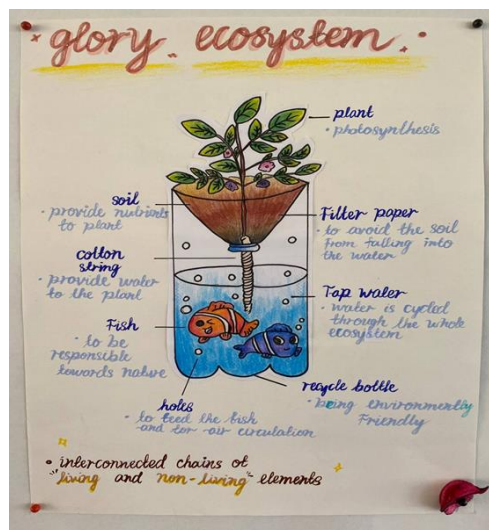 glory ecosystem
plant
• photosynthesis
soil
• provide nutrients
to plant
Filter paper
• to avoid the soil
from falling into
the water
cotton
string
• provide water
to the plant
Tap water
• water is cycled
through the whole
ecosystem
Fish
• to be
responsible
towards nature
recycle bottle
• being environmently
Friendly
holes
• to feed the fish
and for air circulation
• interconnected chains of
"living and non-living" elements